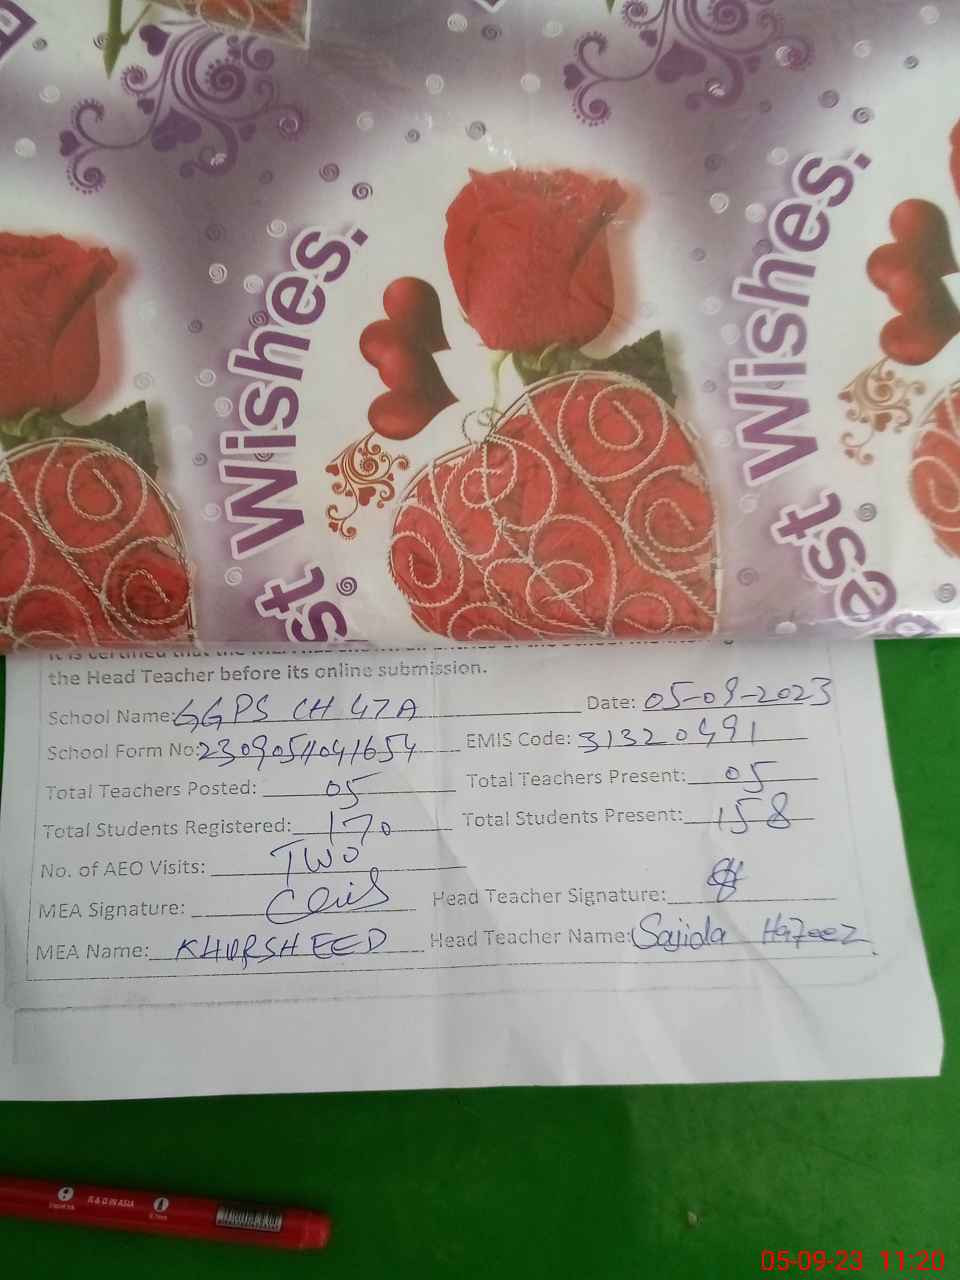 Wishes.
Wishes.
st
est
the Head Teacher before its online submission.
School Name: GGPS CH 47A Date: 05-09-2023
School Form No: 2309051041654 EMIS Code: 31320491
Total Teachers Posted: 05 Total Teachers Present: 05
Total Students Registered: 170 Total Students Present: 158
No. of AEO Visits: TWO
MEA Signature: Head Teacher Signature:
MEA Name: KHURSHEED Head Teacher Name: Sajida Hafeez
R & D IN ASIA
05-09-23 11:20